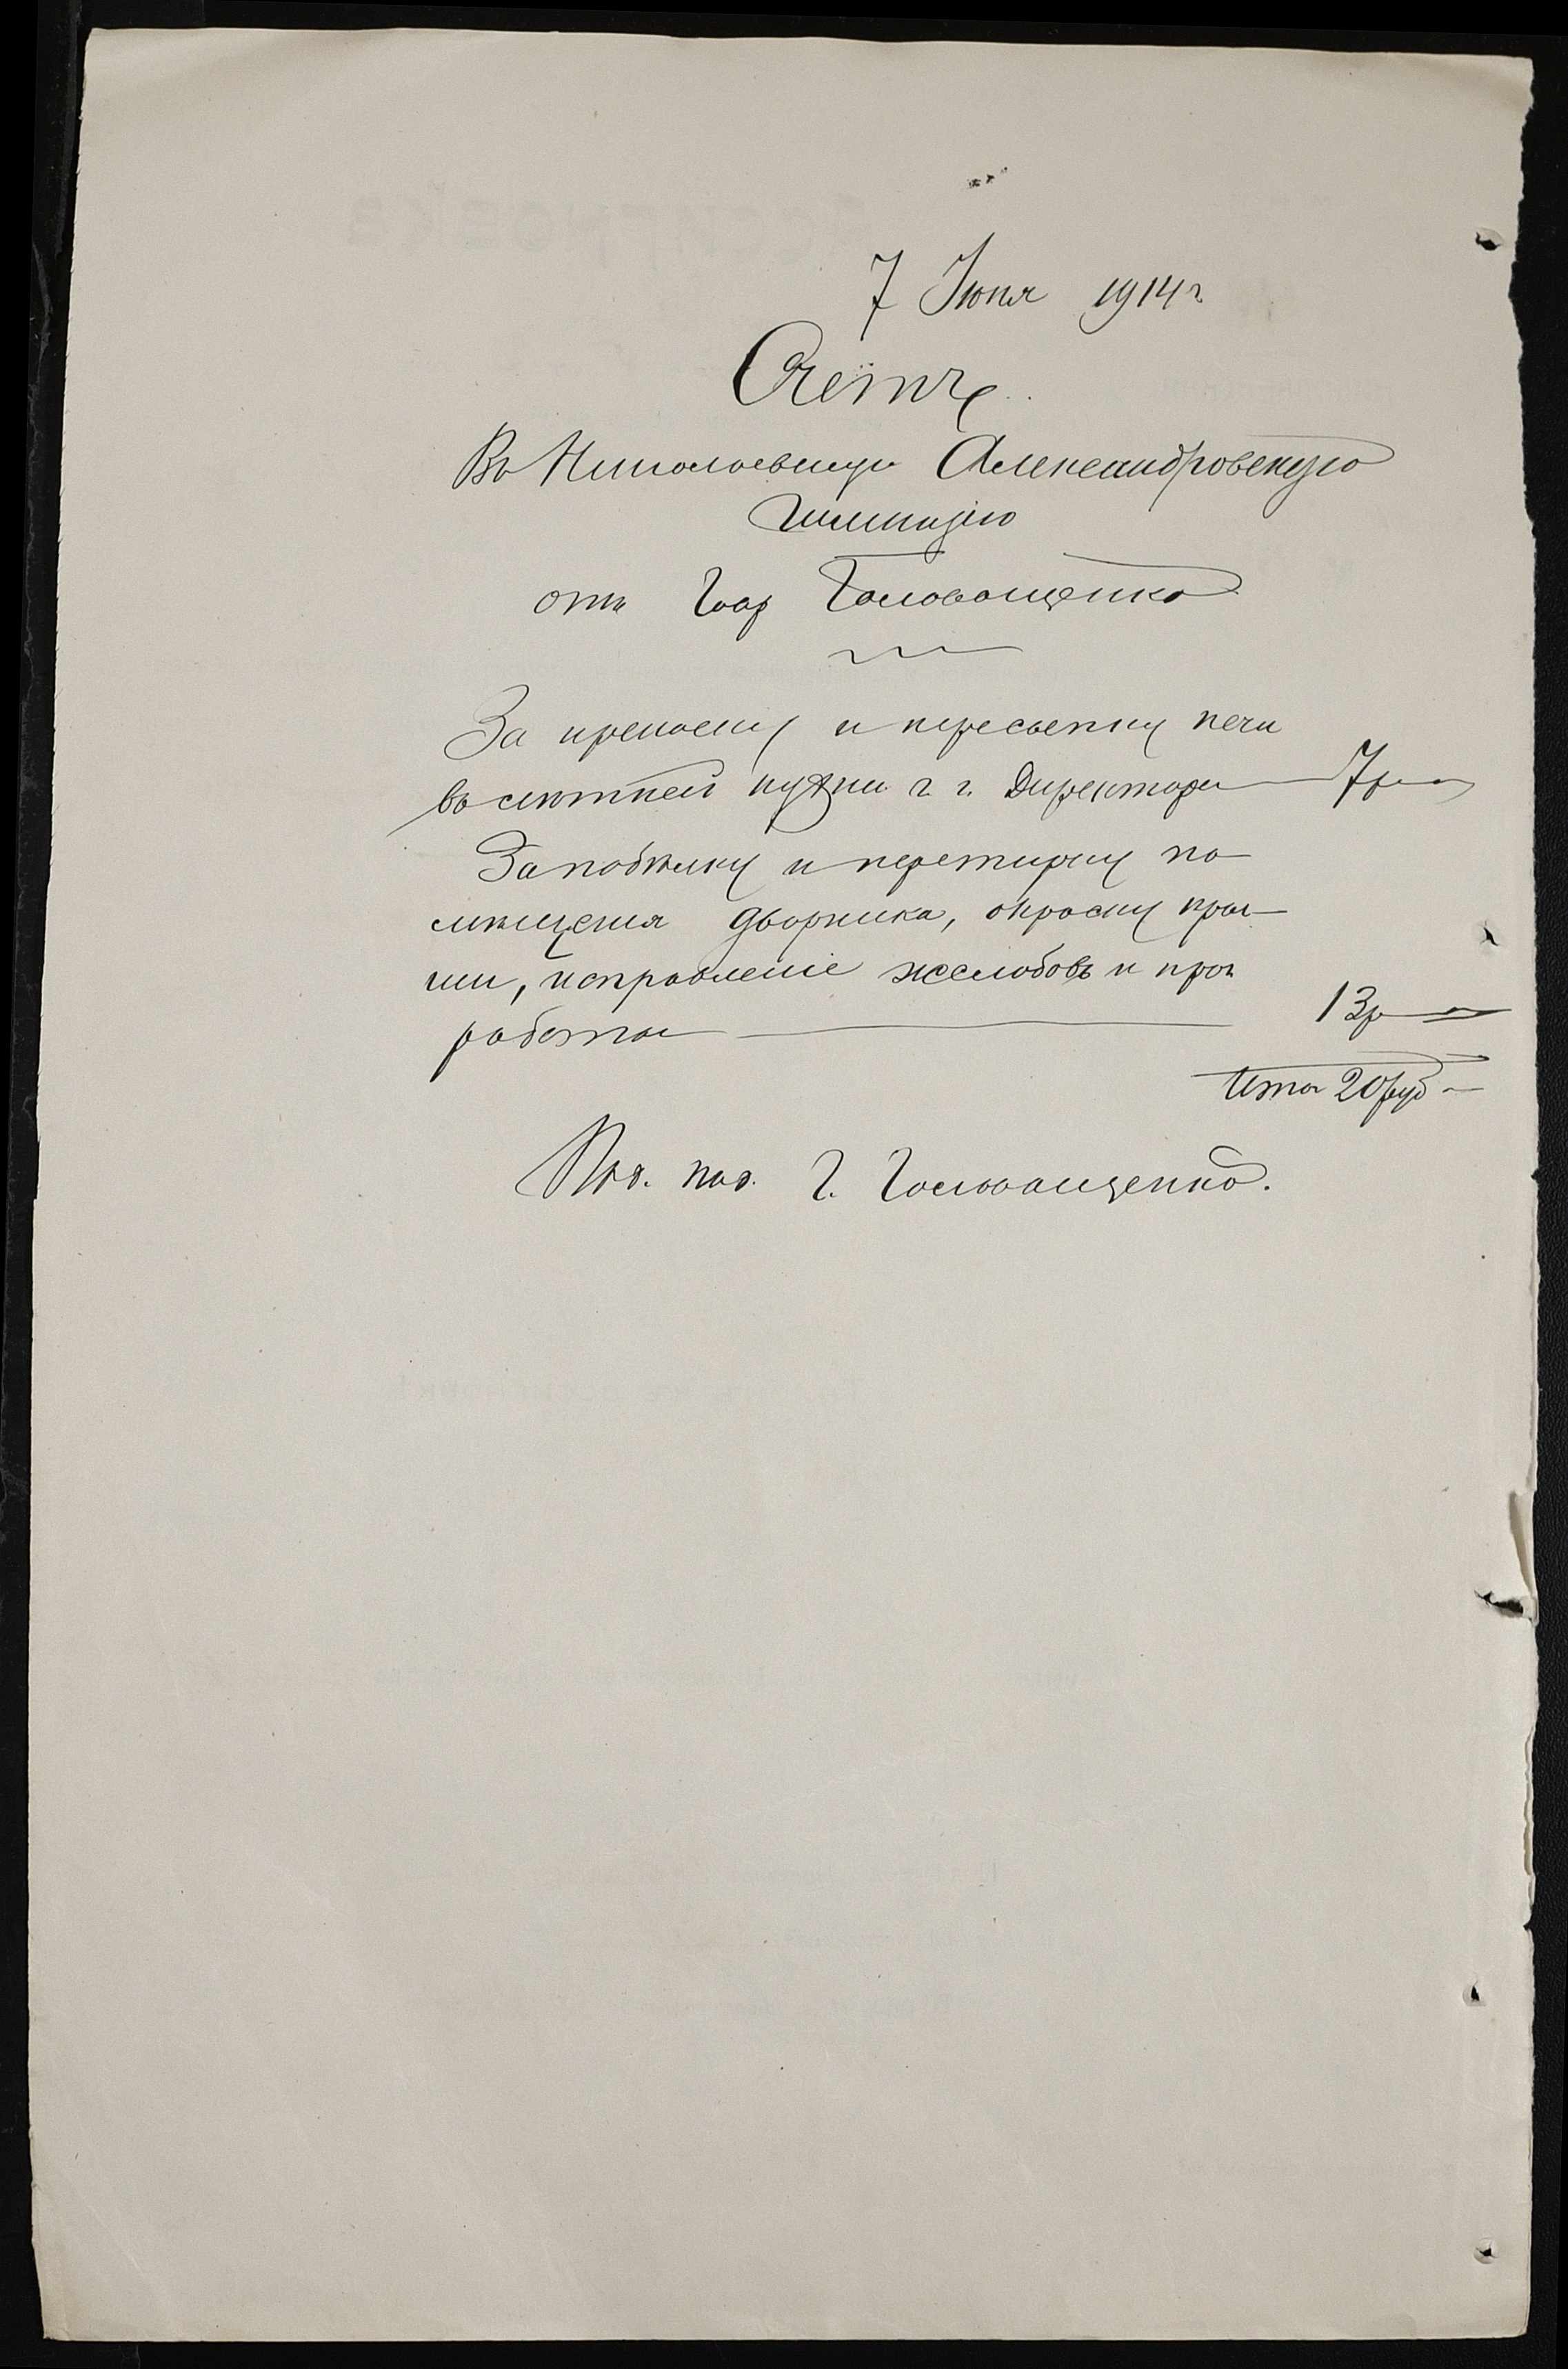 7 Июня 1914 г
Счетъ
Въ Николаевскую Александровскую
Гимназію
отъ Головащенко
За и пересыпку печи
въ лѣтней кухни г. г. Директора 7 р
За побѣлку и перетирку по
мѣщенія дворника, окраску кры
ши, исправленіе желобовъ и проч
работы
13 р
Итого 20 руб
Г. Головащенко.